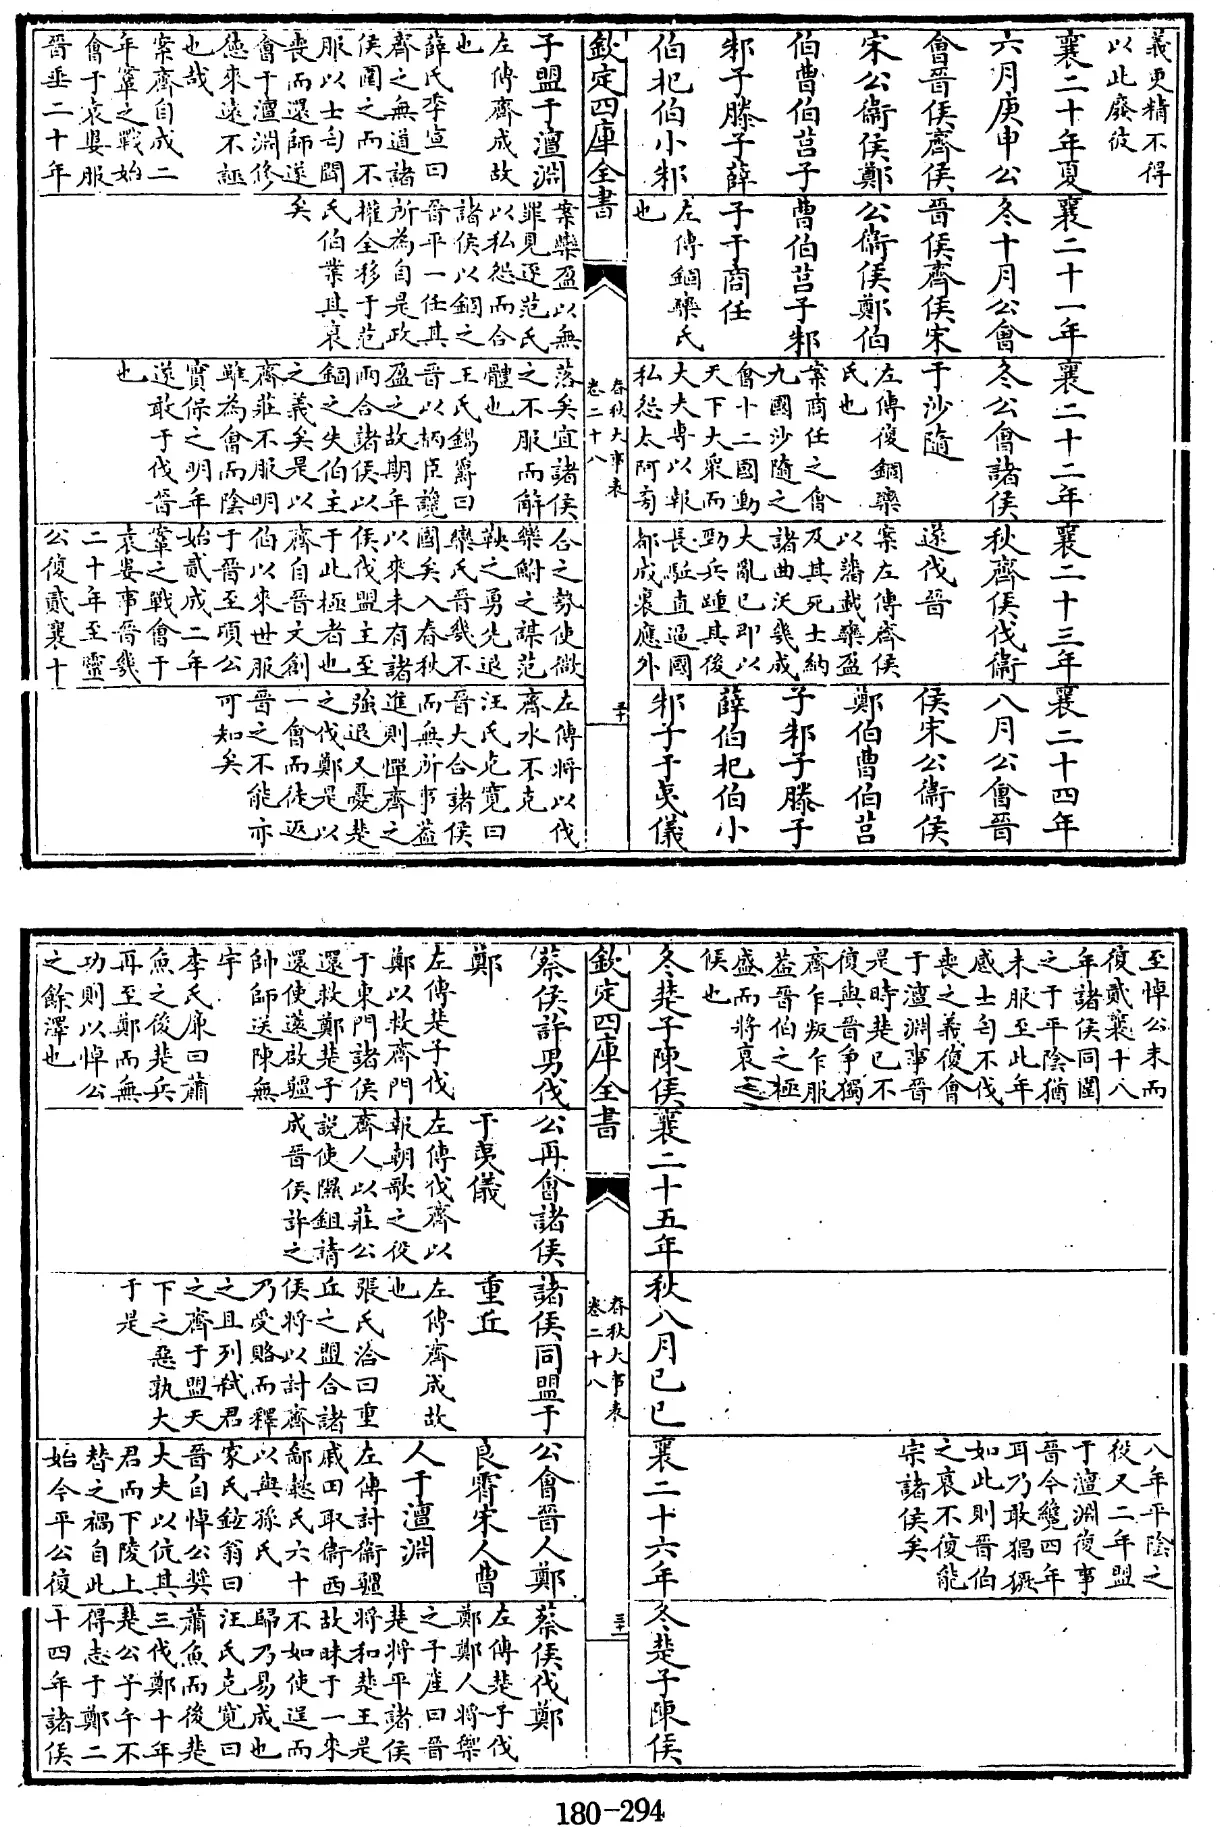 義更精不得
以此廢彼
襄二十年夏
六月庚申公
會晉侯齊侯
宋公衞侯鄭
伯曹伯莒子
邾子滕子薛
伯杞伯小邾
襄二十一年
冬十月公會
晉侯齊侯宋
公衞侯鄭伯
曹伯莒子邾
子于商任
左傳錮欒氏
也
襄二十二年
冬公會諸侯
于沙隨
左傳復錮欒
氏也
案商任之會
九國沙隨之
會十二國動
天下大衆而
大夫專以報
私怨太阿旁
襄二十三年
秋齊侯伐衞
遂伐晉
案左傳齊侯
以藩載欒盈
及其死士納
諸曲沃幾成
大亂已即以
勁兵踵其後
長驅直逼國
都成裏應外
襄二十四年
八月公會晉
侯宋公衞侯
鄭伯曹伯莒
子邾子滕子
薛伯杞伯小
邾子于夷儀
欽定四庫全書
春秋大事表
卷二十八
三十
子盟于澶淵
左傳齊成故
也
薛氏季宣曰
齊之無道諸
侯圍之而不
服以士匄聞
喪而還師遂
會于澶淵修
德來遠不誣
也哉
案齊自成二
年鞌之戰始
會于袁婁服
晉垂二十年
案欒盈以無
罪見逐范氏
以私怨而合
諸侯以錮之
晉平一任其
所為自是政
權全移于范
氏伯業其衰
矣
落矣宜諸侯
之不服而解
體也
王氏錫爵曰
晉以柄臣讒
盈之故期年
而合諸侯以
錮之失伯主
之義矣是以
齊莊不服明
雖為會而陰
實保之明年
遂敢于伐晉
也
合之勢使微
欒魴之謀范
鞅之勇先退
欒氏晉幾不
國矣入春秋
以來未有諸
侯伐盟主至
于此極者也
齊自晉文創
伯以來世服
于晉至頃公
始貳成二年
鞌之戰會于
袁婁事晉幾
二十年至靈
公復貳襄十
左傳將以伐
齊水不克
汪氏克寛曰
晉大合諸侯
而無所事蓋
進則憚齊之
強退又憂楚
之伐鄭是以
一會而徒返
晉之不能亦
可知矣
至悼公末而
復貳襄十八
年諸侯同圍
之于平陰猶
未服至此年
感士匄不伐
喪之義復會
于澶淵事晉
是時楚已不
復與晉爭獨
齊乍叛乍服
蓋晉伯之極
盛而將衰之
侯也
冬楚子陳侯
襄二十五年
秋八月己巳
八年平陰之
役又二年盟
于澶淵復事
晉今纔四年
耳乃敢猖獗
如此則晉伯
之衰不復能
宗諸侯矣
襄二十六年
冬楚子陳侯
欽定四庫全書
春秋大事表
卷二十八
三十一
蔡侯許男伐
鄭
左傳楚子伐
鄭以救齊門
于東門諸侯
還救鄭楚子
還使薳啟疆
帥師送陳無
宇
李氏廉曰蕭
魚之後楚兵
再至鄭而無
功則以悼公
之餘澤也
公再會諸侯
于夷儀
左傳伐齊以
報朝歌之役
齊人以莊公
說使隰鉏請
成晉侯許之
諸侯同盟于
重丘
左傳齊成故
也
張氏洽曰重
丘之盟合諸
侯將以討齊
乃受賂而釋
之且列弒君
之齊于盟天
下之惡孰大
于是
公會晉人鄭
良霄宋人曹
人于澶淵
左傳討衞疆
戚田取衞西
鄙懿氏六十
以與孫氏
家氏鉉翁曰
晉自悼公奬
大夫以伉其
君而下陵上
替之禍自此
始今平公復
蔡侯伐鄭
左傳楚子伐
鄭鄭人將禦
之子產曰晉
楚將平諸侯
將和楚王是
故昧于一來
不如使逞而
歸乃易成也
汪氏克寛曰
蕭魚而後楚
三伐鄭十年
楚公子午不
得志于鄭二
十四年諸侯
180-294